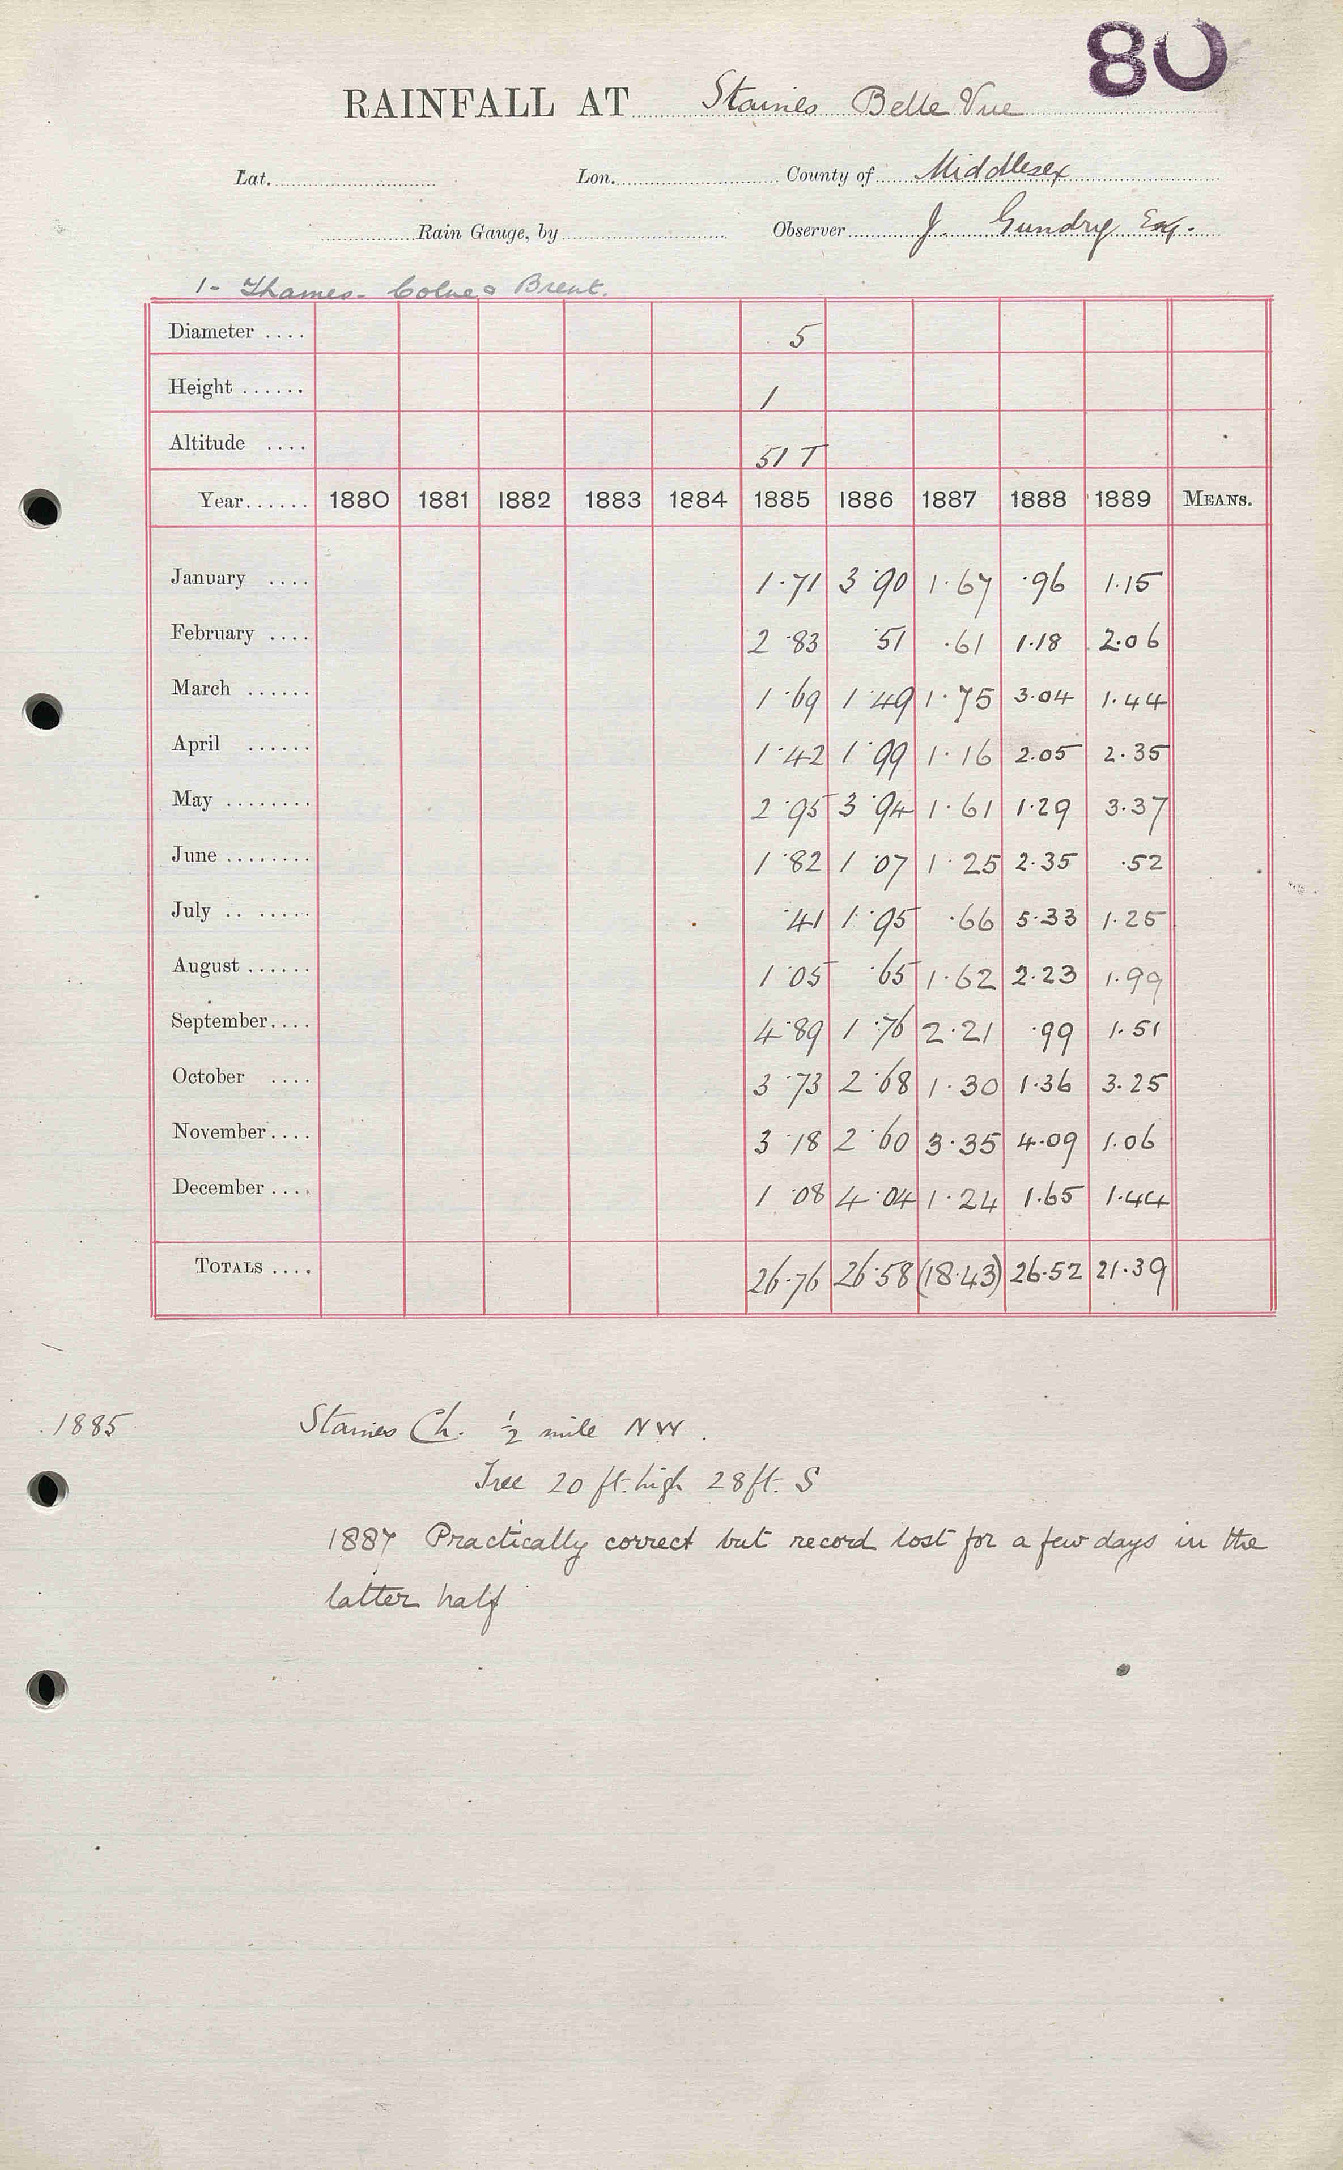 80
RAINFALL AT Staines Belle Vue
Lat. Lon. County of Middlesex
Rain Gauge, by Observer J. Gundry Esq.
1- Thames- Colne & Brent.
Diameter .... 5
Height ...... 1
Altitude .... 51 T
Year...... 1880 1881 1882 1883 1884 1885 1886 1887 1888 1889 MEANS.
January .... 1.71 3.90 1.67 .96 1.15
February .... 2.83 .51 .61 1.18 2.06
March ...... 1.69 1.49 1.75 3.04 1.44
April ...... 1.42 1.99 1.16 2.05 2.35
May ........ 2.95 3.94 1.61 1.29 3.37
June ........ 1.82 1.07 1.25 2.35 .52
July .. ..... .41 1.95 .66 5.33 1.25
August ...... 1.05 .65 1.62 2.23 1.99
September.... 4.89 1.76 2.21 .99 1.51
October .... 3.73 2.68 1.30 1.36 3.25
November.... 3.18 2.60 3.35 4.09 1.06
December .... 1.08 4.04 1.24 1.65 1.44
TOTALS .... 26.76 26.58 (18.43) 26.52 21.39
1885 Staines Ch. ½ mile NW.
Tree 20 ft. high 28 ft. S
1887 Practically correct but record lost for a few days in the
latter half